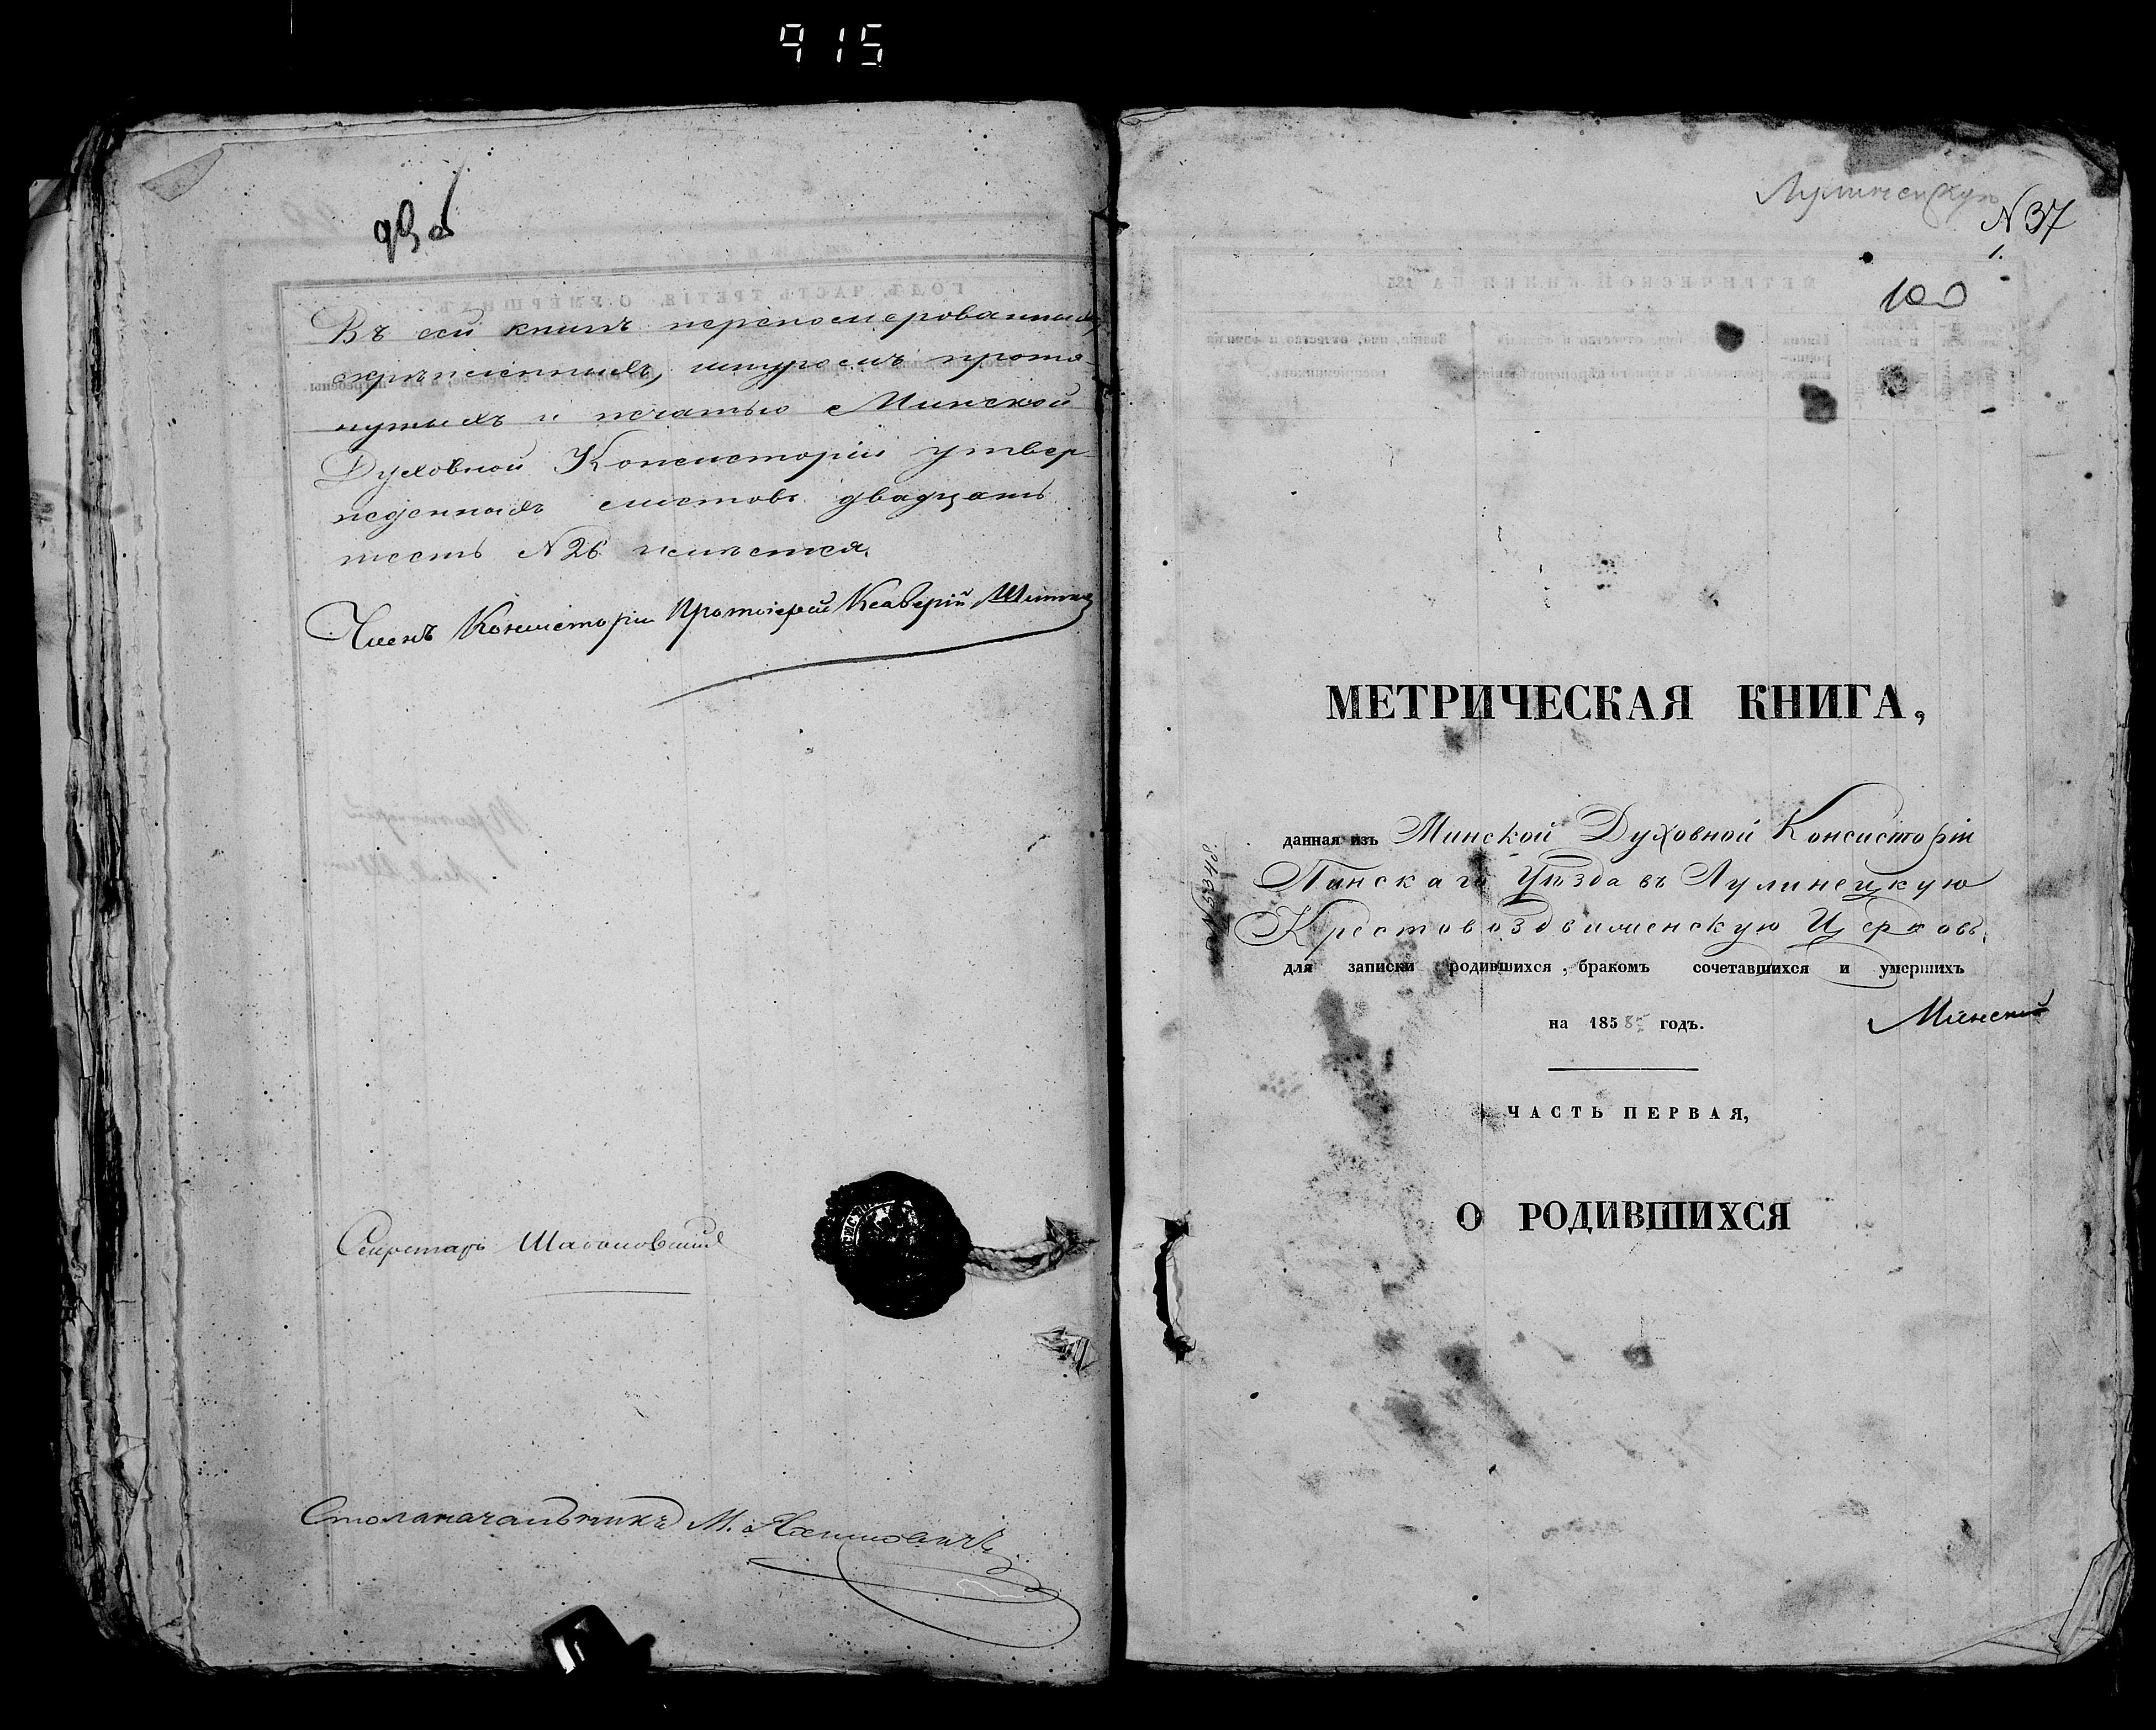 915
Въ сей книгѣ перепомерованныхъ,
скрѣпленныхъ, шнуромъ протя-
нутыхъ и печатью Минской
Духовной Консисторіи утвер-
жденныхъ листовъ двадцать
шесть N 26 имѣется.
Членъ Консисторіи Протоіерей Ксаверій
Секретарь
Столоначальникъ М.
Лулинецкую
N 37
1.
100
МЕТРИЧЕСКАЯ КНИГА,
данная изъ Минской Духовной Консисторіи
Пинскаго Уѣзда въ Лулинецкую
Крестовоздвиженскую Церковь,
для записки родившихся, бракомъ сочетавшихся и умершихъ
на 1858 годъ.
N 5348
ЧАСТЬ ПЕРВАЯ,
О РОДИВШИХСЯ